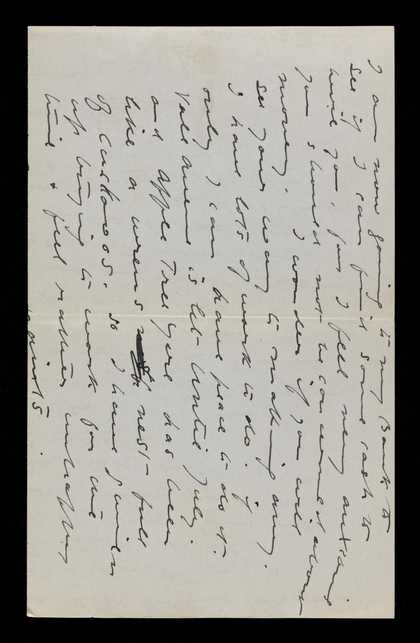 I am now going to my Bank to
see if I can find some cash to
wire you, for I feel very anxious
you should not be concerned about
money. I wonder if you will
see your way to making any.
I have lots of work to do. if
only I can have peace to do it.
Vale Avenue is let until July.
and Apple Tree Yard has been
like a wrens nest - full
of cuckoos. So I have given
up trying to work for the
time & feel rather unhappy